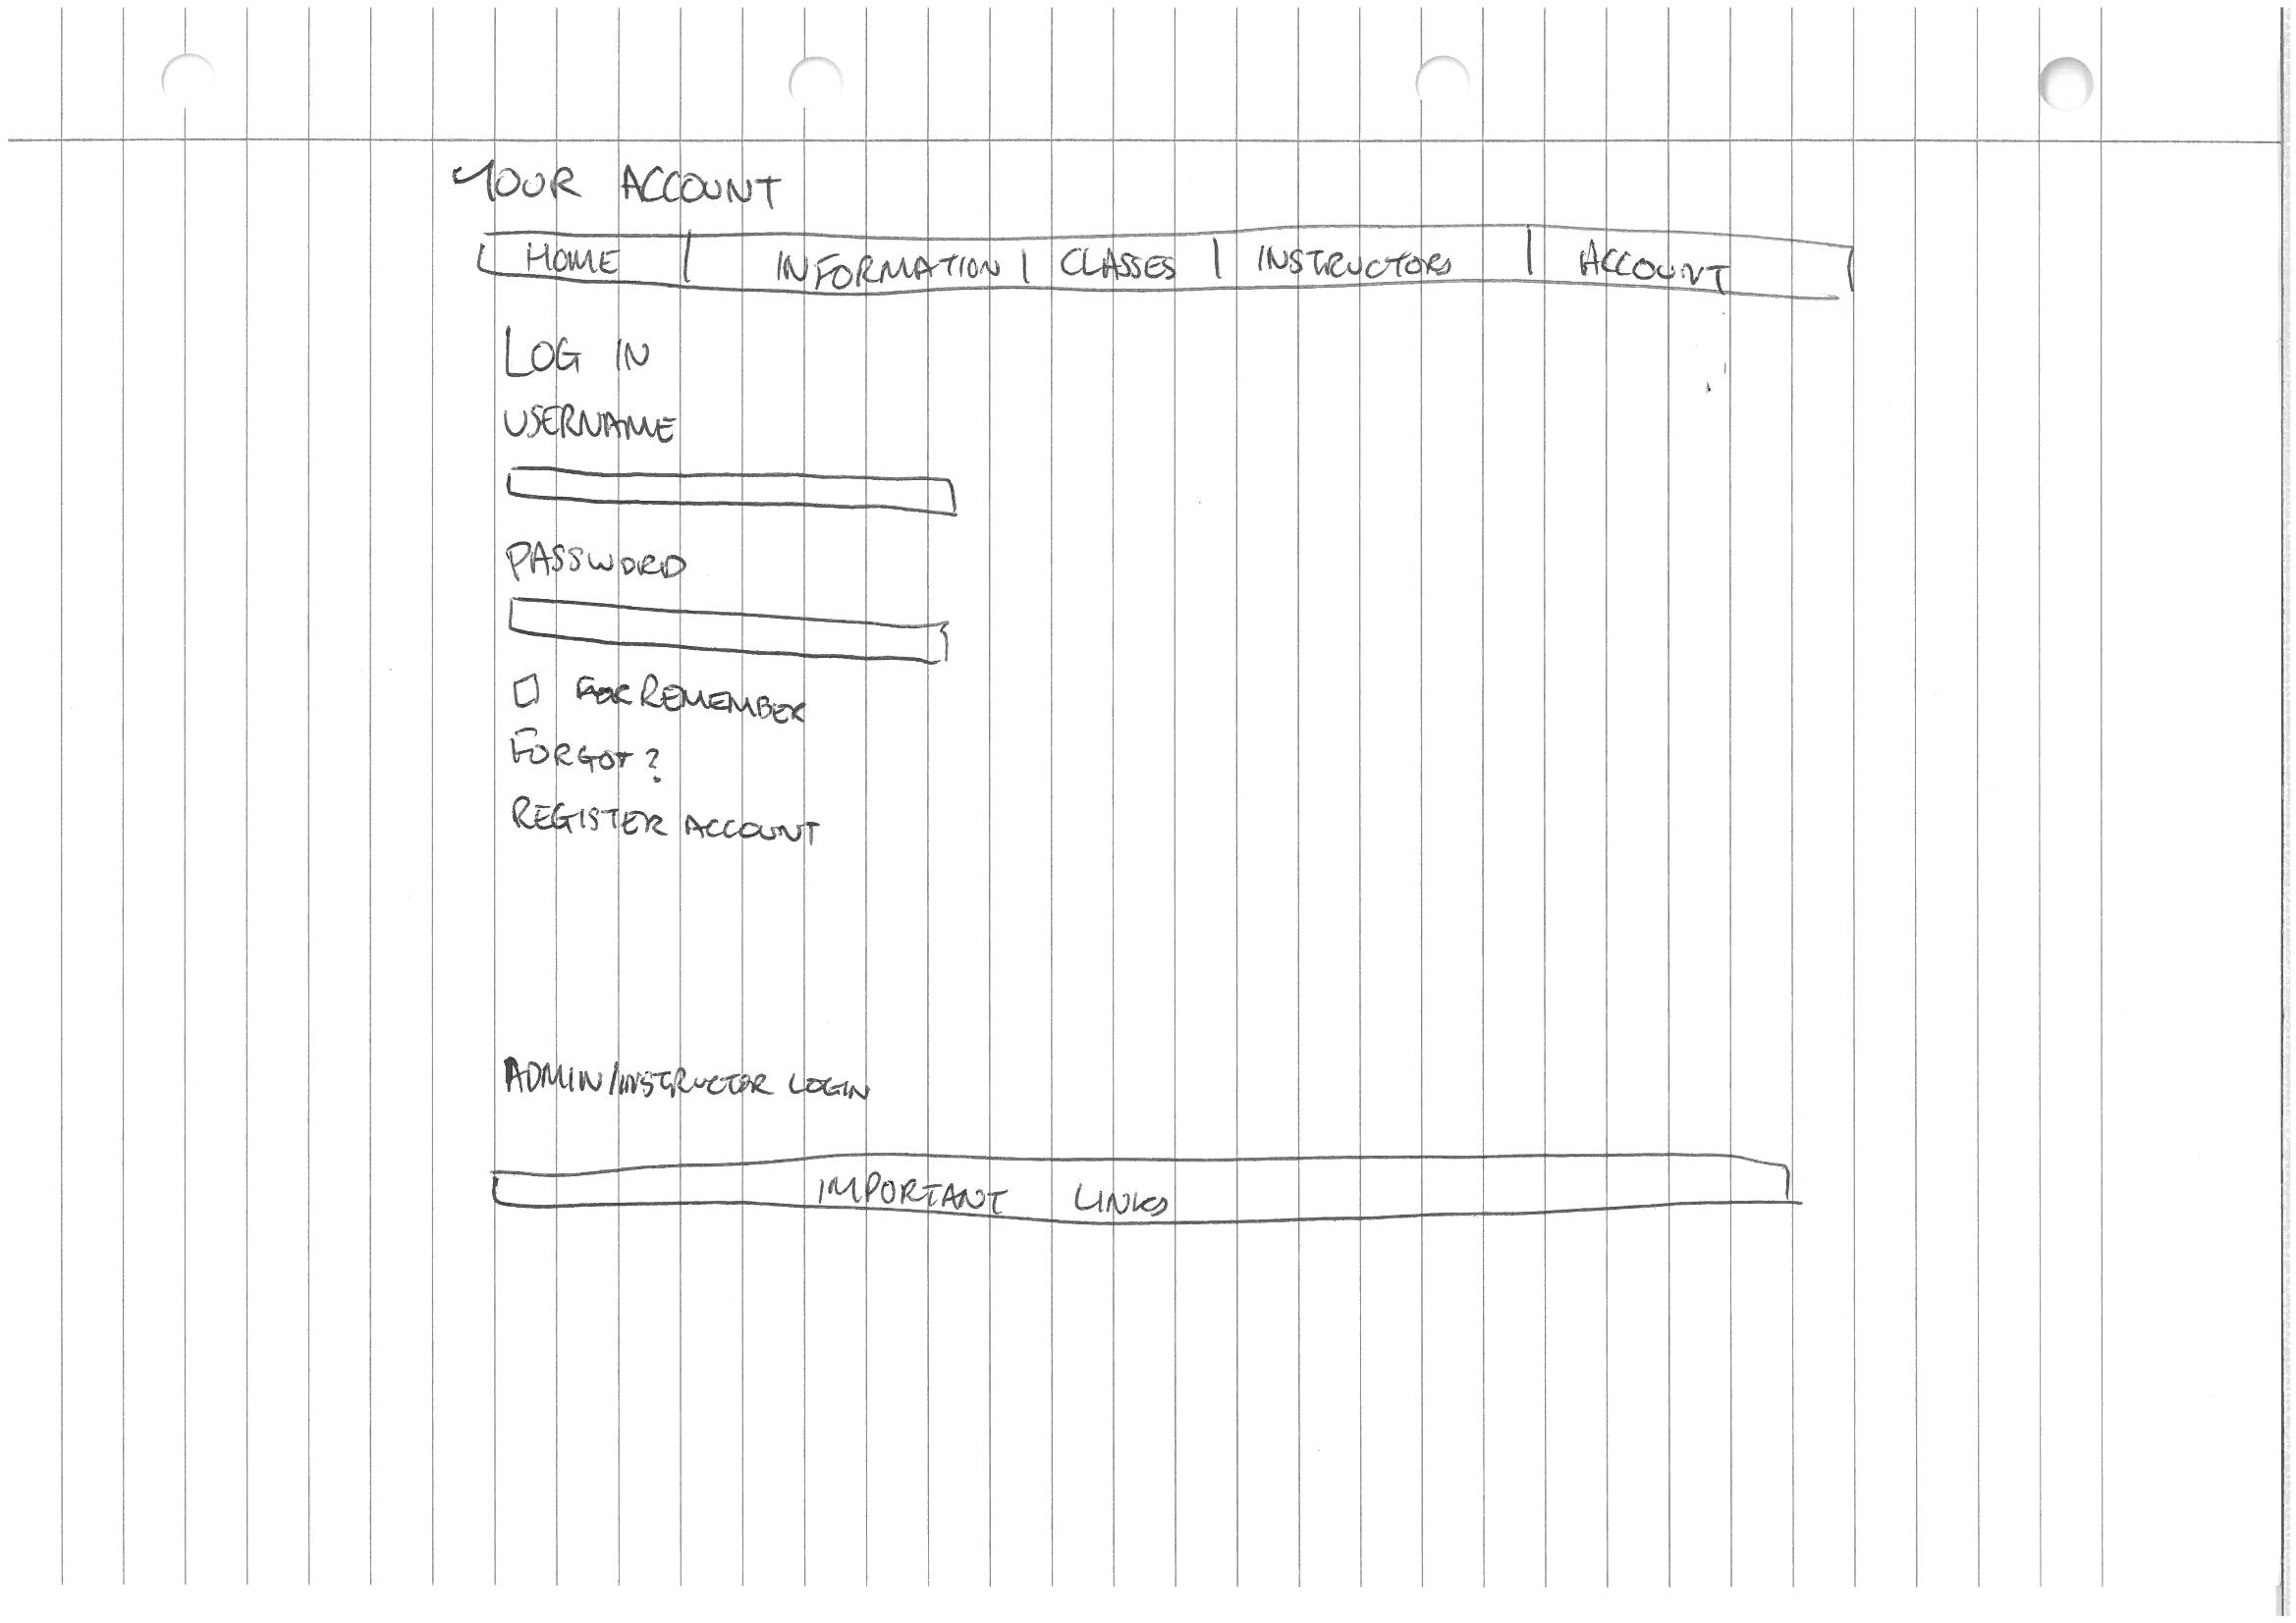 YOUR ACCOUNT
HOME | INFORMATION | CLASSES | INSTRUCTORS | ACCOUNT
LOG IN
USERNAME
PASSWORD
REMEMBER
FORGOT?
REGISTER ACCOUNT
ADMIN/INSTRUCTOR LOGIN
IMPORTANT LINKS